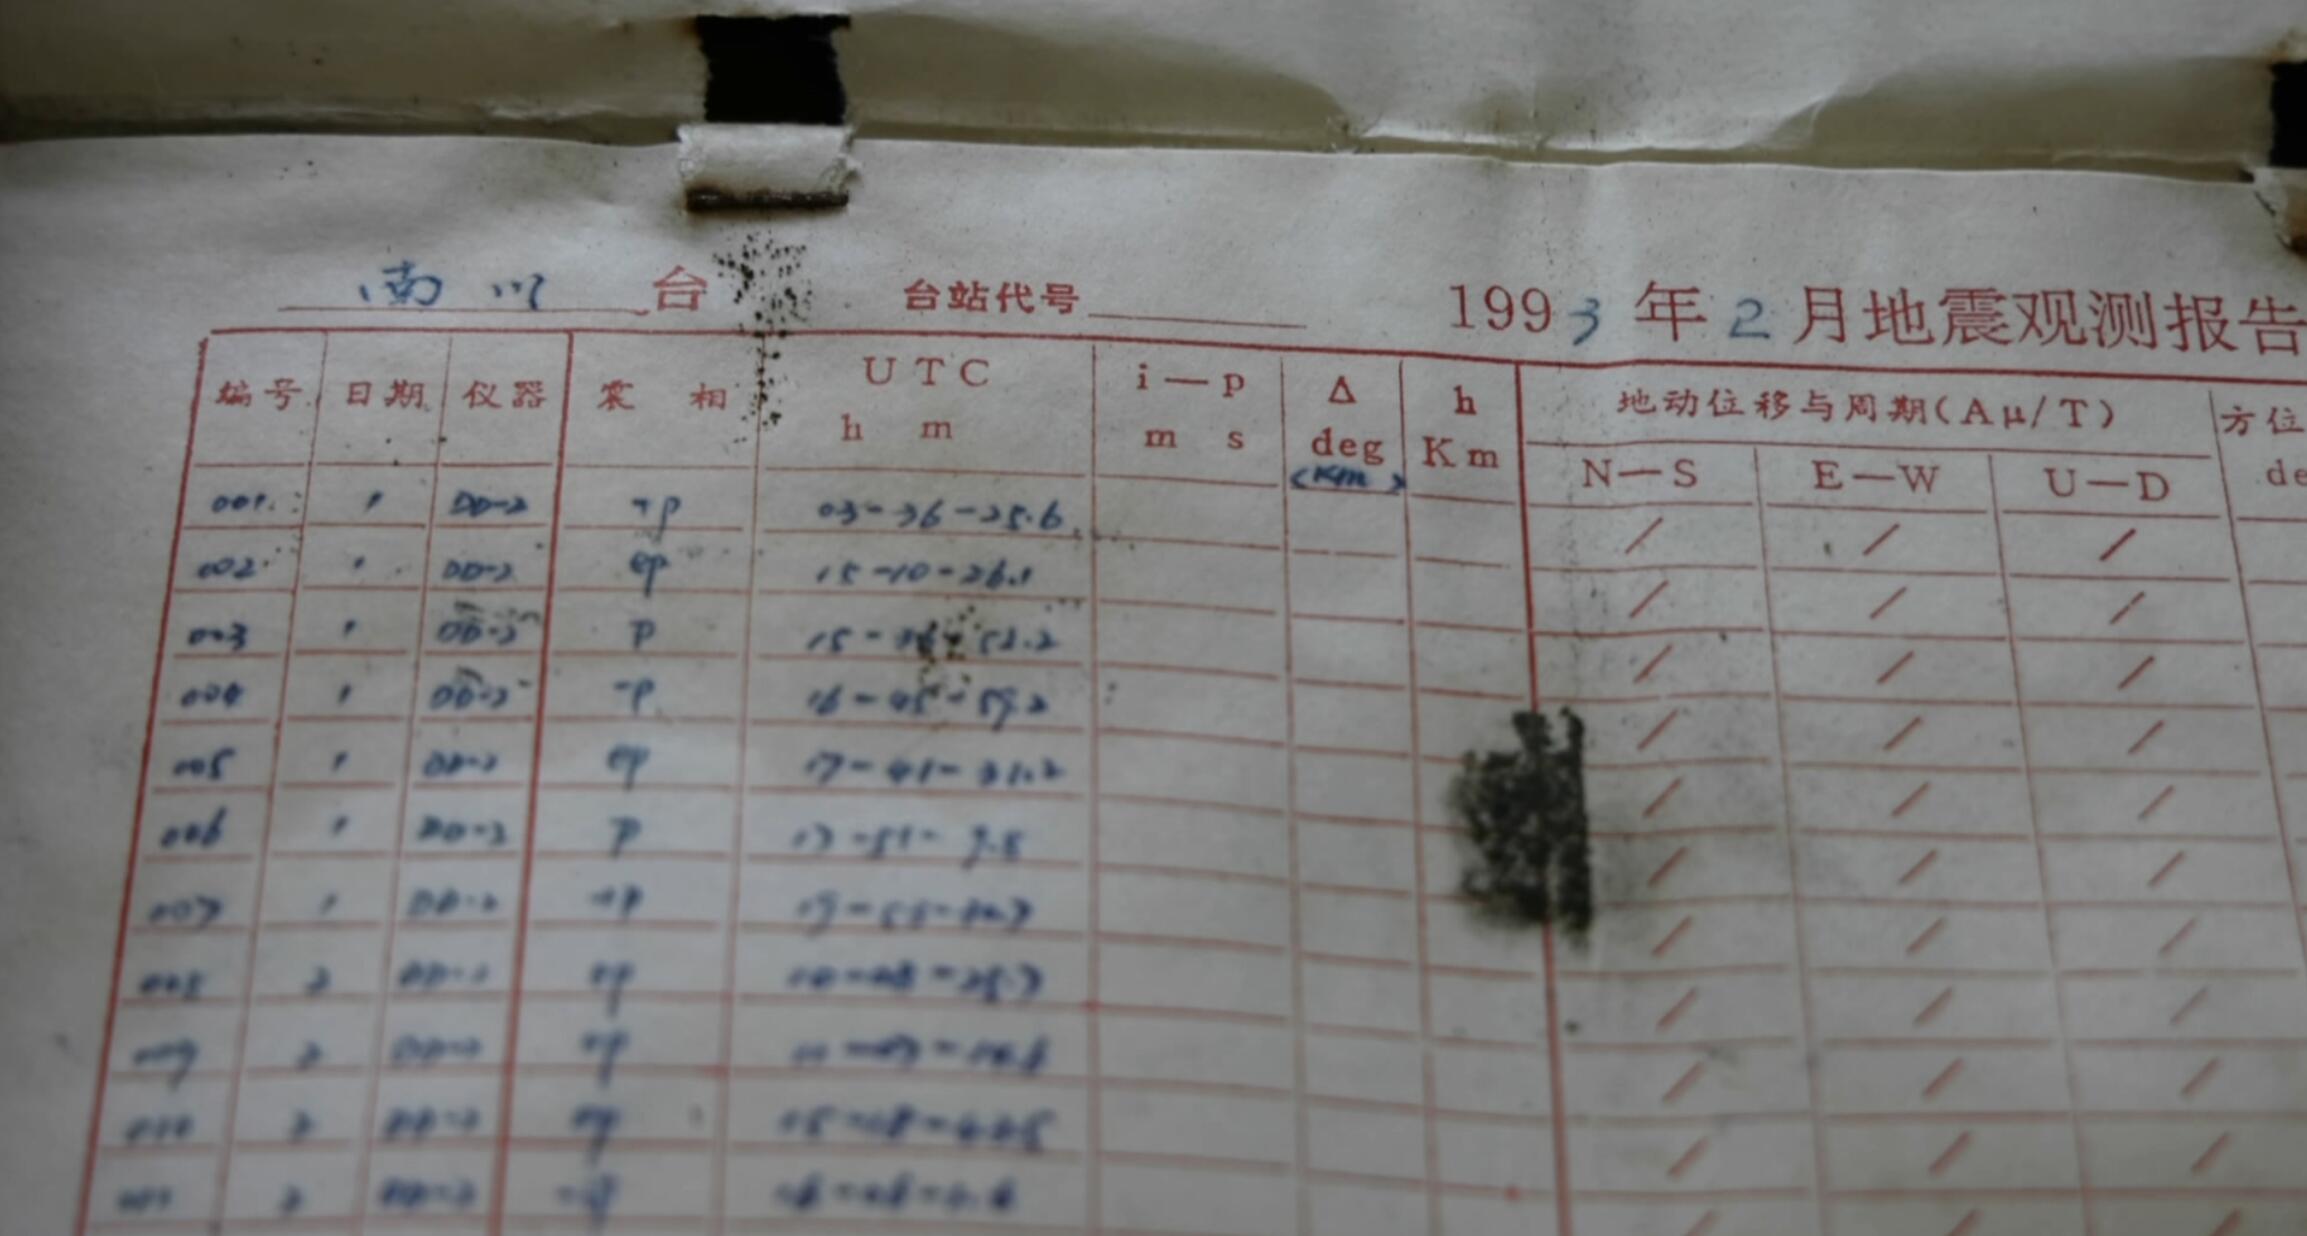 南川 台 台站代号 1993年2月地震观测报告
编号 日期 仪器 震相 UTC i—p Δ h 地动位移与周期(Aμ/T) 方位
h m m s deg Km de
(Km) N—S E—W U—D
001 1 DD-2 -P 03-36-25.6 / / /
002 1 DD-2 eP 15-10-26.1 / / /
003 1 DD-2 P 15- 52.2 / / /
004 1 DD-2 -P 16-45-59.2 / / /
005 1 DD-2 eP 17-41-31.2 / / /
006 1 DD-2 P 17-51- 9.5 / / /
007 1 DD-2 19-55- / / /
008 2 DD-2 eP / / /
009 2 DD-2 eP / / /
010 2 DD-2 eP / / /
2 DD-2 / / /